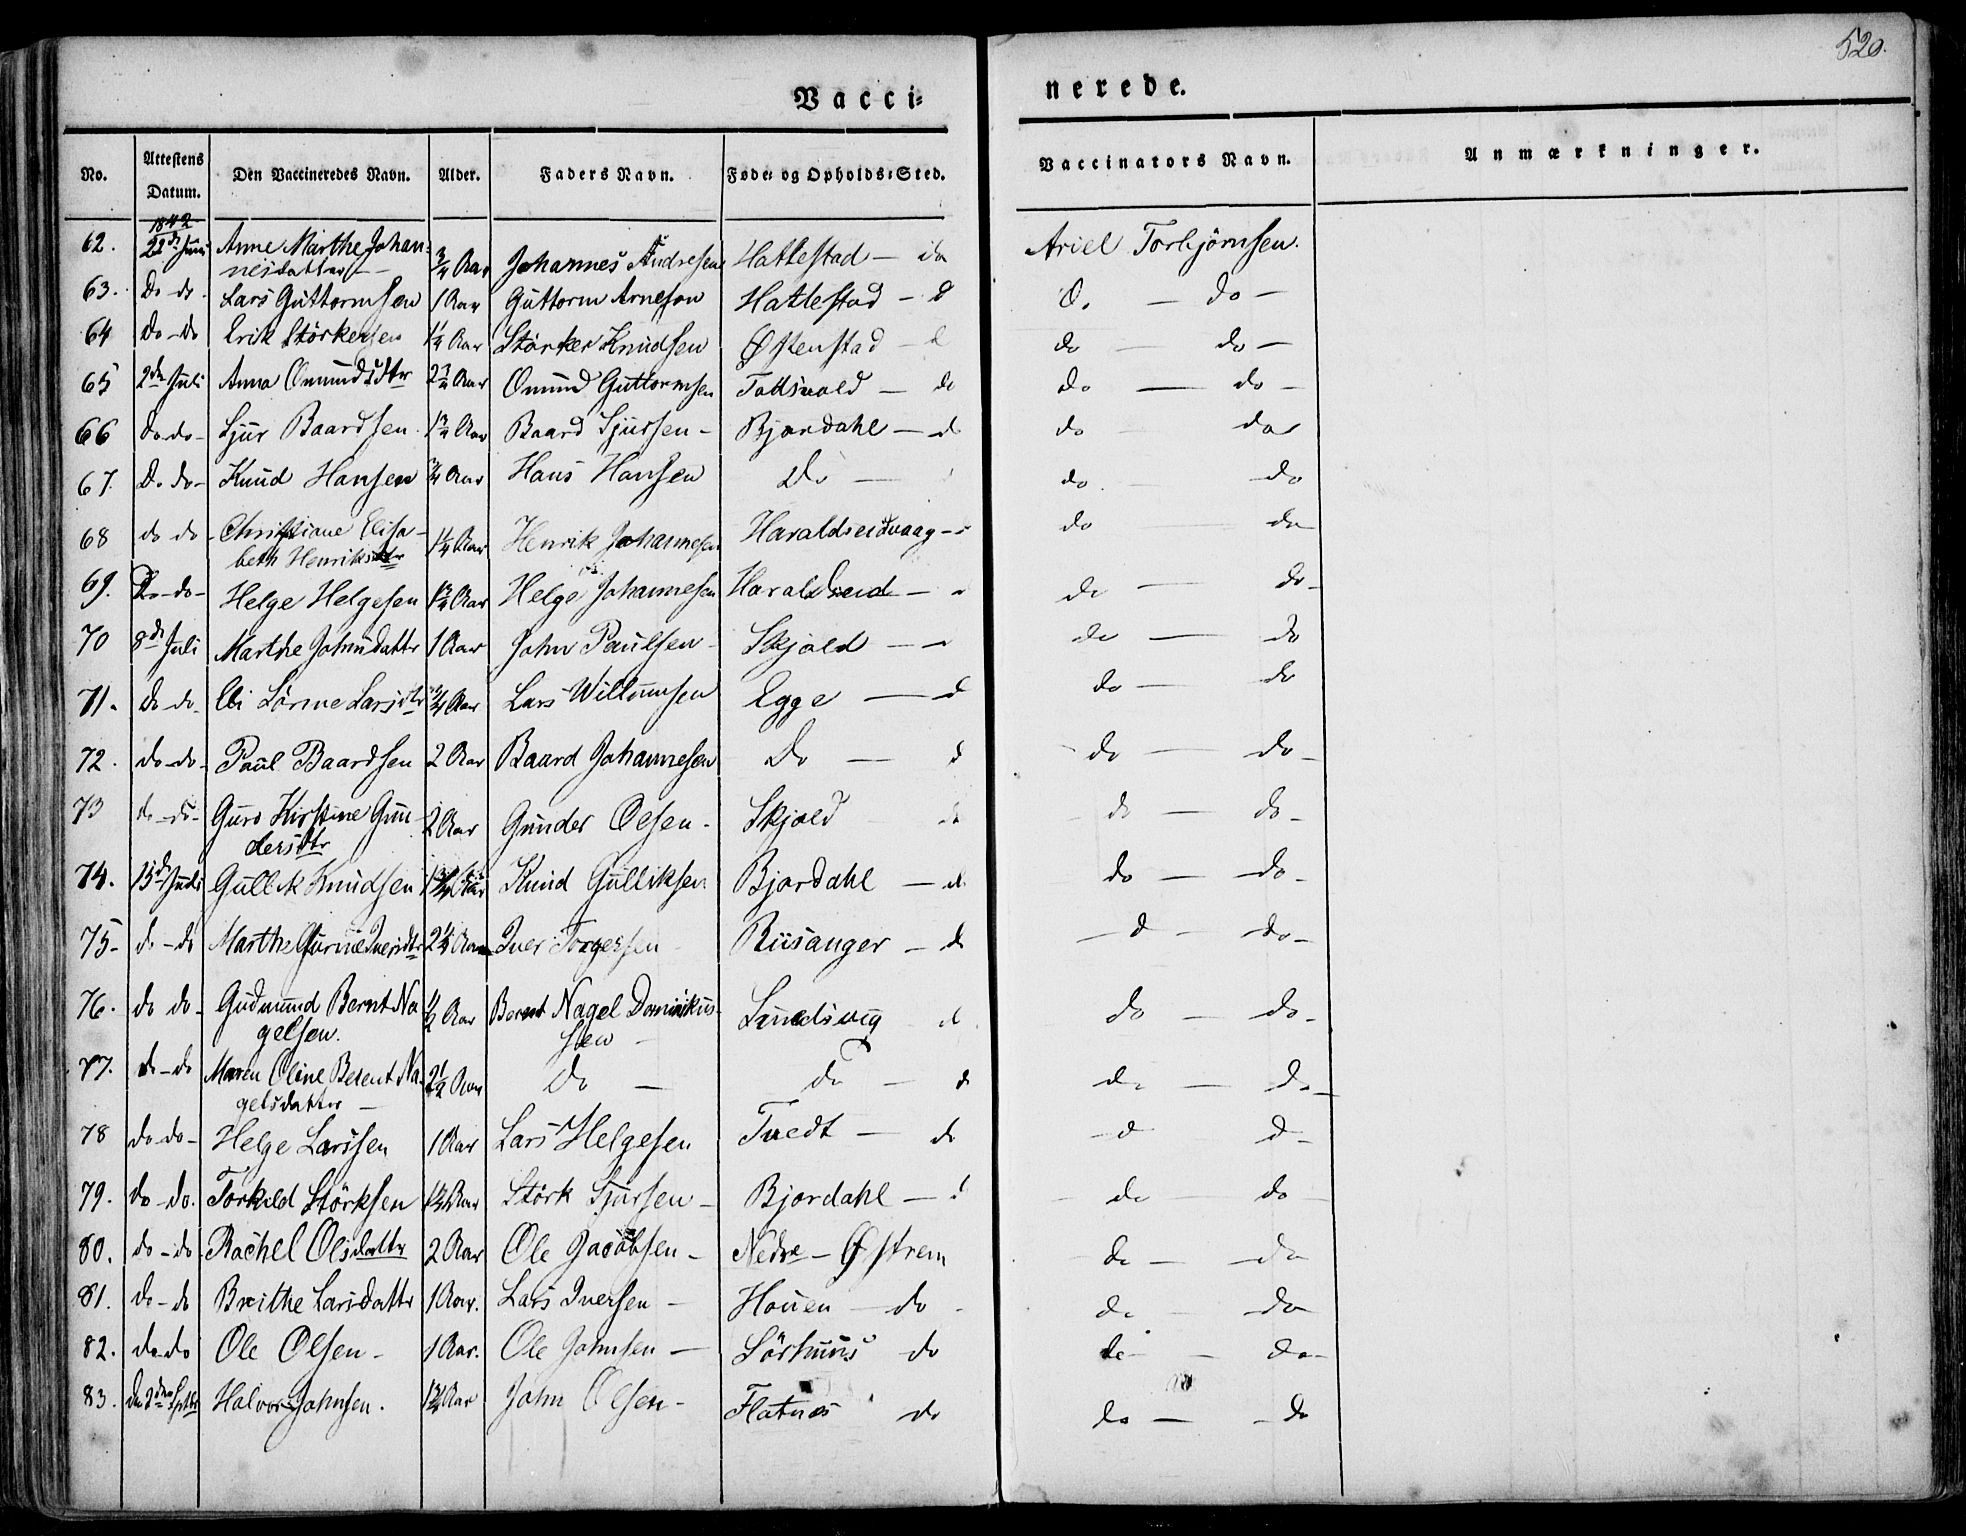 520.
Vacci=
nerede.
No. Attestens Datum. Den Vaccineredes Navn. Alder. Faders Navn. Føde- og Opholds-Sted. Vaccinators Navn. Anmærkninger.
1842
62. 22de Juni Anne Marthe Johan- 3/4 Aar Johannes Andresen Hattestad – do Ariel Torbjörnsen.
nesdatter –
63. Do – do. Lars Guttormsen 1 Aar Guttorm Arneson Hattestad – d D. – do –
64 Do – Do Erik Störkersen 1 1/4 Aar Störker Knudsen Østenstad – d do – do –
65 2den Juli Anna Omundsdtr 2 3/4 Aar Omund Guttormsen – do do – do –
66 do – do – Sjur Baardsen 1 3/4 Aar Baard Sjursen – Bjordahl – do do – do
67. D. do – Knud Hansen 3/4 Aar Hans Hansen Do – do – do
68 do do – Christiane Elisa- 1 1/4 Aar Henrik Johannesen Haraldseidvaag – do – do
beth Henriksdtr
69. Do – do – Helge Helgesen 1 3/4 Aar Helge Johannesen Haraldseid – do – do –
70 8de Juli Marthe Johnsdattr 1 Aar John Paulsen – Skjold – do – do
71. Do do – Eli Sørine Larsdtr 3/4 Aar Lars Willumsen Egge – d do – do
72. do – do – Paul Baardsen 2 Aar Baard Johannesen Do – d – do – do –
73 do – do – Guro Kirstine Gun- 2 Aar Gunder Olsen – Skjold do – do – do –
dersdtr
74. 15de Juli Gullik Knudsen Knud Gulliksen Bjordahl – d. do – do –
75 – d. – do Marthe Iversdtr 2 1/4 Aar Iver Torgersen – Riisanger – do – d – do –
76. do do – Gudmund Bernt Na- 1/2 Aar Bernt Nagel Dominikus- d. do – do –
gelsen. sen –
77. do – do Maren Oline Berent Na- 2 1/2 Aar Do – do – d do – do –
gelsdatter –
78 do – do – Helge Larssen 1 Aar Lars Helgesen Tvedt – do – d d –
79. do – do. Torkild Störksen 1 3/4 Aar Störk Sjursen – Bjordahl – d – do – do –
80. do – do Rachel Olsdattr 2 Aar Ole Jacobsen – Nedre – Østrem – do – do
81. do – do Brithe Larsdattr 1 Aar. Lars Iversen – Houen – do – do – do
82. do – do Ole Olsen – 1 Aar. Ole Johnsen – Sörhuus do do – do –
83. Den 2den Septbr Halvor Johnsen. 1 3/4 Aar John Olsen – Flatnæs do do – – do